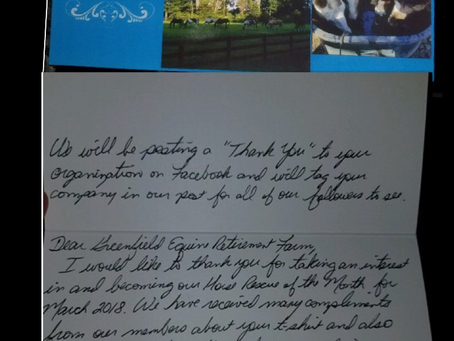 We will be posting a "Thank You" to your
organization on Facebook and will tag your
company in our post for all of our followers to see.
Dear Greenfield Equine Retirement Farm,
I would like to thank you for taking an interest
in and becoming our Horse Rescue of the Month for
March 2018. We have received many complements
from our members about your t-shirt and also